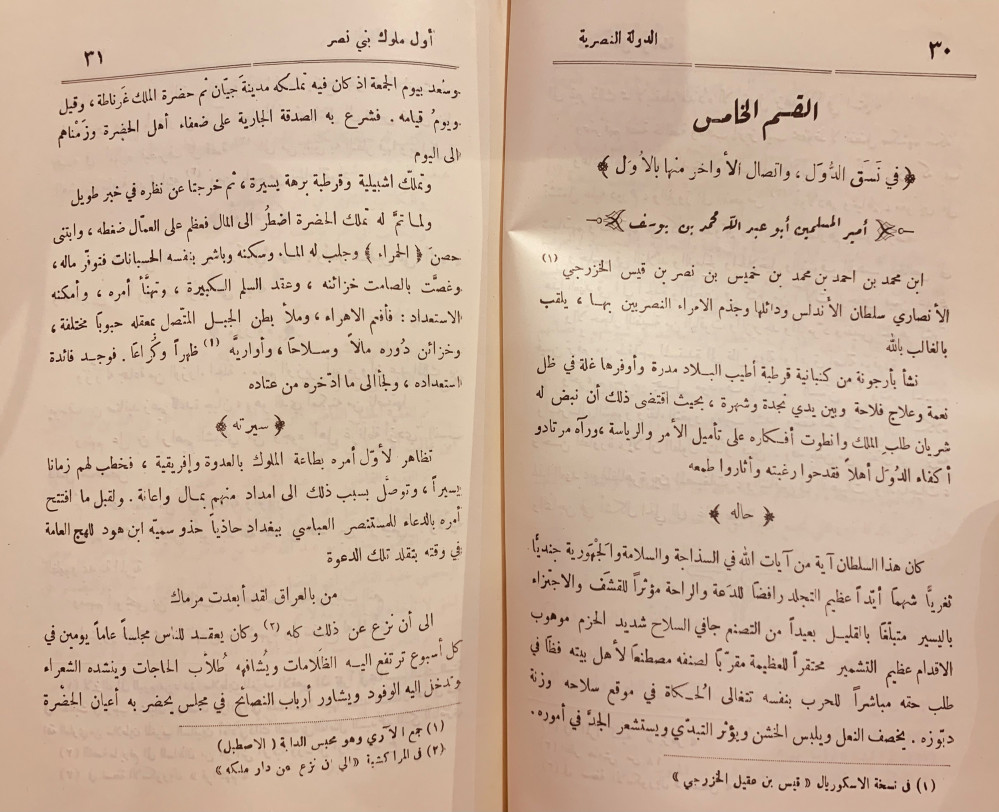 ٣٠
الدولة النصرية
القسم الخامس
﴿ في نَسَق الدُّوَل ، واتصال الأواخر منها بالأوَل ﴾
أمير المسلمين أبو عبد الله محمد بن يوسف
ابن محمد بن احمد بن محمد بن خميس بن نصر بن قيس الخزرجي (١)
الأنصاري سلطان الأندلس ودائلها وجذم الامراء النصريين بها ، يلقب
بالغالب بالله
نشأ بأرجونة من كنبانية قرطبة أطيب البلاد مدرة وأوفرها غلة في ظل
نعمة وعلاج فلاحة وبين يدي نجدة وشهرة ، بحيث اقتضى ذلك أن نبض له
شريان طلب الملك وانطوت أفكاره على تأميل الأمر والرياسة ، ورآه مرتادو
أكفاء الدُوَل أهلاً فقدحوا رغبته وأثاروا طمعه
﴿ حاله ﴾
كان هذا السلطان آية من آيات الله في السذاجة والسلامة والجَهْورية جنديًّا
ثغريًّا شهماً أيّداً عظيم التجلد رافضاً للدَعة والراحة مؤثراً للقشَف والاجتزاء
باليسير متبلّغا بالقليل بعيداً من التصنع جافي السلاح شديد الحزم موهوب
الاقدام عظيم التشمير محتقراً للعظيمة مقرّبا لصنفه مصطنعاً لأهل بيته فظا في
طلب حقه مباشراً للحرب بنفسه تتغالى الحُكاة في موقع سلاحه وزنة
دبّوزه . يخصف النعل ويلبس الخشن ويؤثر التبدّي ويستشعر الجدَّ في أموره .
(١) في نسخة الاسكوريال « قيس بن عقيل الخزرجي »
أول ملوك بني نصر
٣١
وسُعد بيوم الجمعة اذ كان فيه تملكه مدينةَ جيّان ثم حضرة الملك غَرناطة ، وقيل
ويومُ قيامه . فشرع به الصدقة الجارية على ضعفاء أهل الحضرة وزَمْناهم
الى اليوم
وتملّك اشبيلية وقرطبة برهة يسيرة ، ثم خرجتا عن نظره في خبر طويل
ولما تمَّ له تملك الحضرة اضطُر الى المال فعظم على العمّال ضغطه ، وابتنى
حصنَ ﴿ الحمراء ﴾ وجلب له الماء وسكنه وباشر بنفسه الحسبانات فتوفّر ماله ،
وغصَّت بالصامت خزائنه ، وعقد السلم الكبيرة ، وتهنَّأ أمره ، وأمكنه
الاستعداد : فأفعم الاهراء ، وملأ بطن الجبل المتّصل بمعقله حبوبا مختلفة ،
وخزائن دُوره مالاً وسلاحا ، وأواريَّه (١) ظهراً وكُراعا . فوجد فائدة
استعداده ، ولجأ الى ما ادّخره من عتاده
﴿ سيرته ﴾
تظاهر لأوّل أمره بطاعة الملوك بالعدوة وإفريقية ، فخطب لهم زمانا
يسيراً ، وتوصّل بسبب ذلك الى امداد منهم بمال واعانة . ولقبل ما افتتح
أمره بالدعاء للمستنصر العباسي ببغداد حاذياً حذو سميّه ابن هود للهج العامة
في وقته بتقلد تلك الدعوة
من بالعراق لقد أبعدت مرماك
الى أن نزع عن ذلك كله (٢) وكان يعقد للناس مجلساً عاماً يومين في
كل أسبوع ترتفع اليه الظلامات ويُشافهه طُلاّب الحاجات وينشده الشعراء
وتدخل اليه الوفود ويشاور أرباب النصائح في مجلس يحضر به أعيان الحضْرة
(١) جمع الآري وهو محبس الدابة ( الاصطبل )
(٢) في المراكشية « الى ان نزع عن دار ملكه »